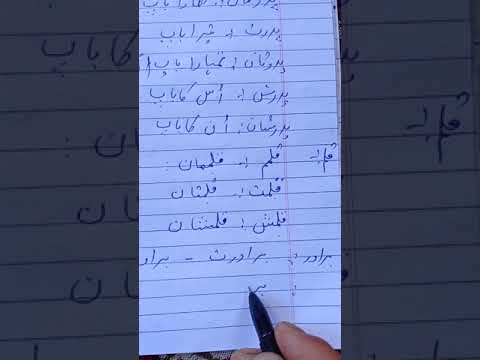 پدرمان : ہمارا باپ
پدرت : تیرا باپ
پدرتان : تمہارا باپ
پدرش : اُس کا باپ
پدرشان : اُن کا باپ
قلم : قلمم : قلممان :
قلمت : قلمتان
قلمش : قلمشان
برادر : برادرت - براد
: بر